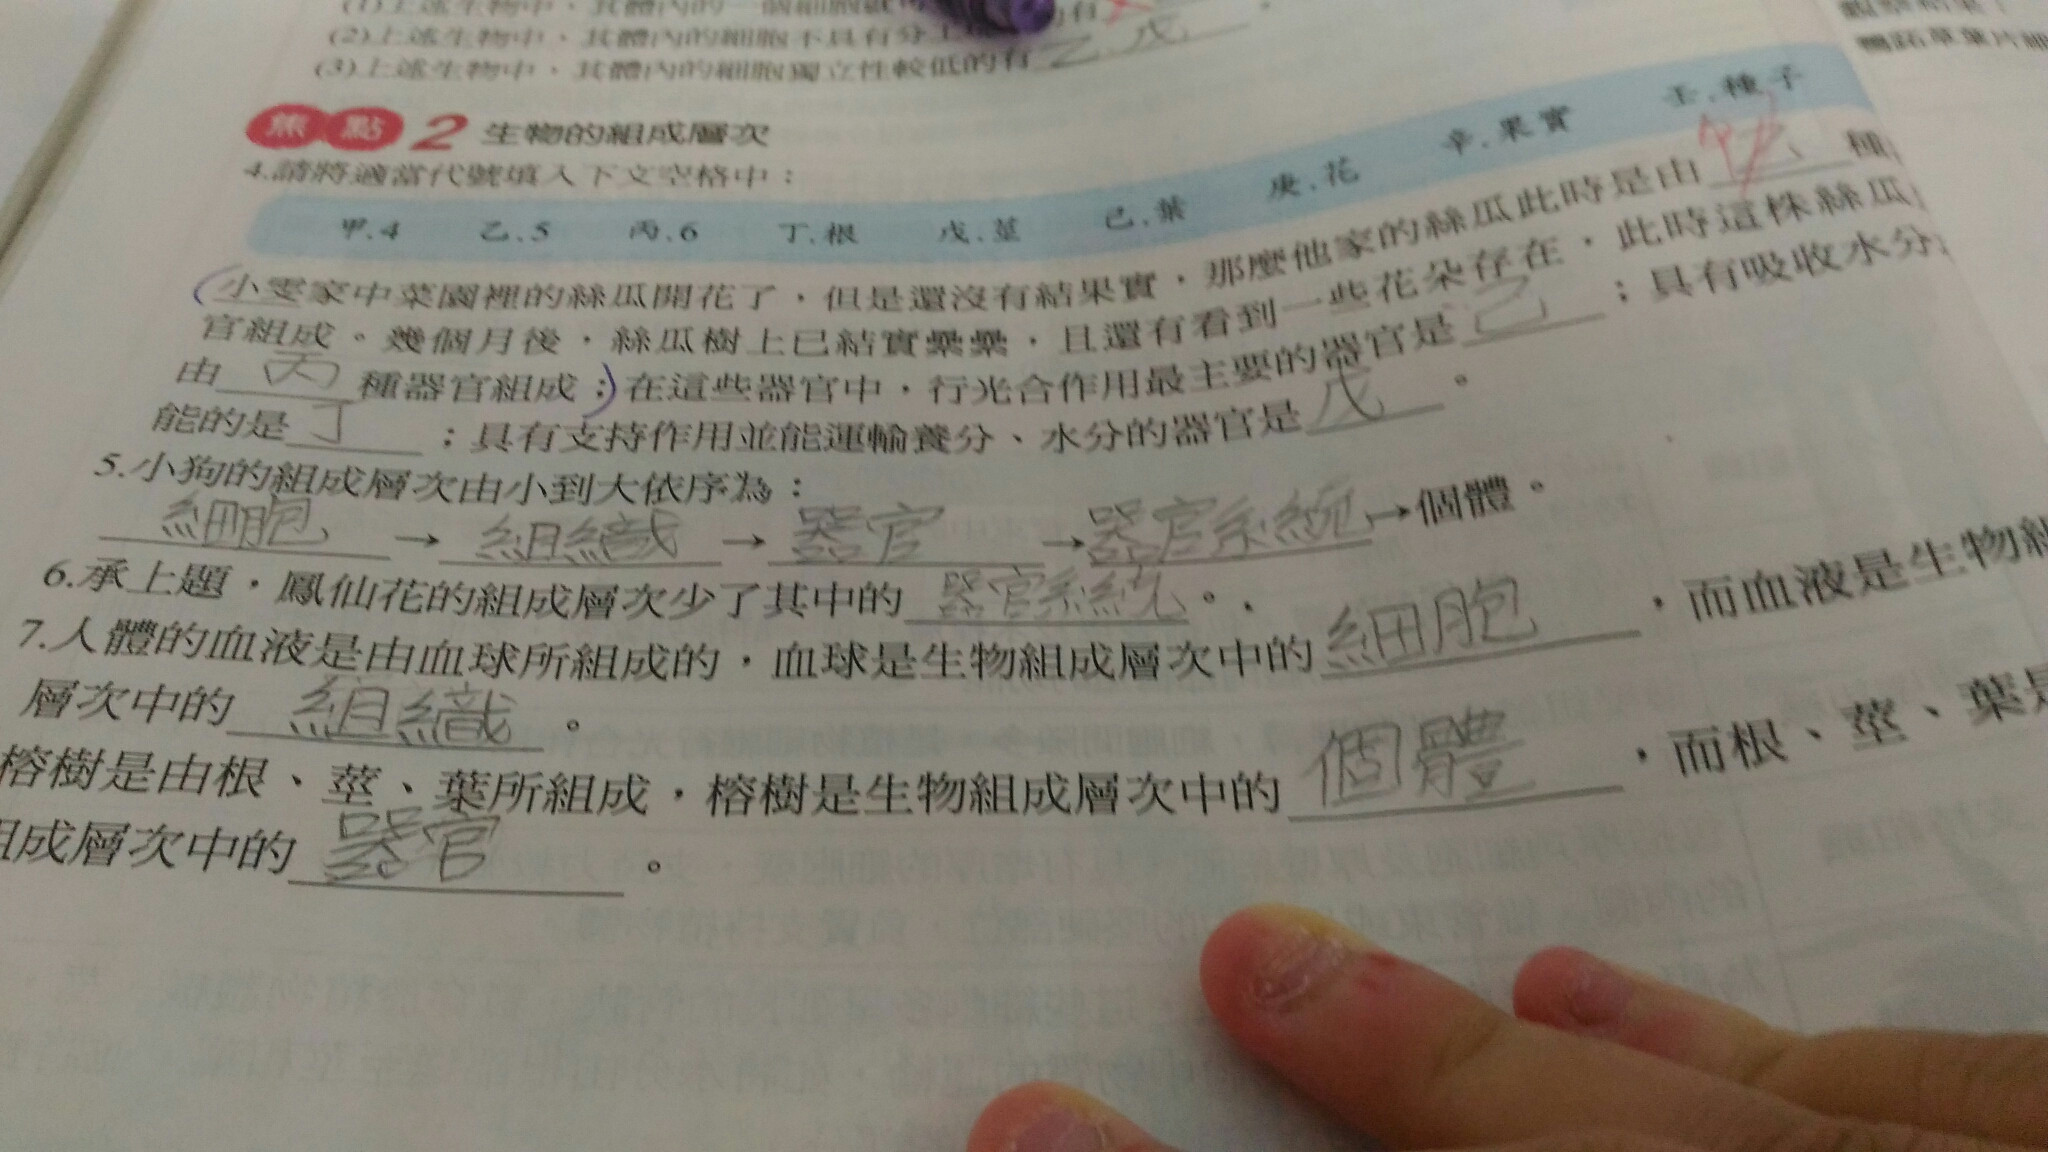 (2)上述生物中，其體內的細胞不具有分工
(3)上述生物中，其體內的細胞獨立性較低的有 乙.戊
焦點2 生物的組成層次
4.請將適當代號填入下文空格中：
甲.4 乙.5 丙.6 丁.根 戊.莖 己.葉 庚.花 辛.果實 壬.種子
小雯家中菜園裡的絲瓜開花了，但是還沒有結果實，那麼他家的絲瓜此時是由 種
官組成。幾個月後，絲瓜樹上已結實纍纍，且還有看到一些花朵存在，此時這株絲瓜
由 丙 種器官組成；在這些器官中，行光合作用最主要的器官是 己 ；具有吸收水分
能的是 丁 ；具有支持作用並能運輸養分、水分的器官是 戊 。
5.小狗的組成層次由小到大依序為：
細胞 → 組織 → 器官 → 器官系統 → 個體。
6.承上題，鳳仙花的組成層次少了其中的 器官系統 。
7.人體的血液是由血球所組成的，血球是生物組成層次中的 細胞 ，而血液是生物
層次中的 組織 。
榕樹是由根、莖、葉所組成，榕樹是生物組成層次中的 個體 ，而根、莖、葉是
組成層次中的 器官 。